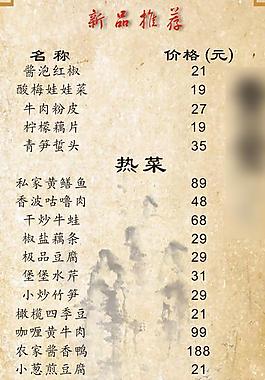 新品推荐
名称 价格(元)
酱泡红椒 21
酸梅娃娃菜 19
牛肉粉皮 27
柠檬藕片 19
青笋蜇头 35
热菜
私家黄鳝鱼 89
香波咕噜肉 48
干炒牛蛙 68
椒盐藕条 29
极品豆腐 29
堡堡水芹 31
小炒竹笋 29
橄榄四季豆 21
咖喱黄牛肉 99
农家酱香鸭 188
小葱煎豆腐 21